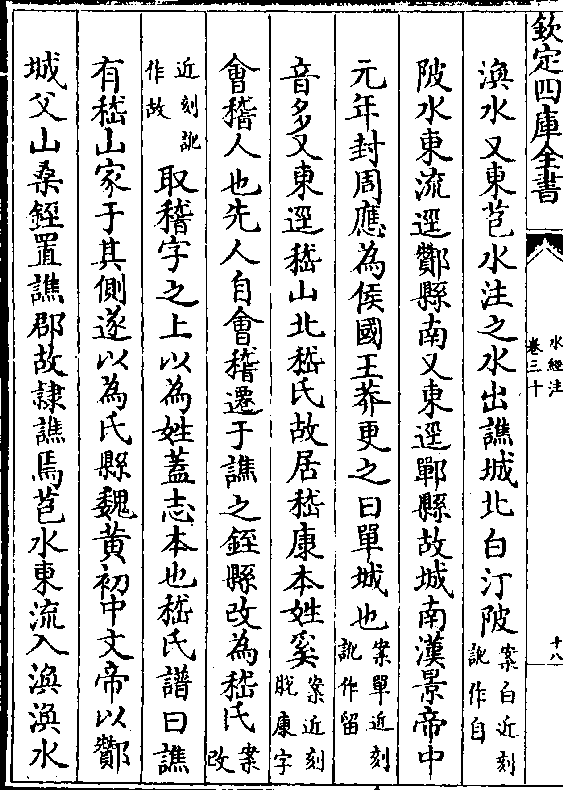 欽定四庫全書
水經注
卷三十
十八
渙水又東苞水注之水出譙城北白汀陂案白近刻訛作自
陂水東流逕酇縣南又東逕鄲縣故城南漢景帝中
元年封周應為侯國王莽更之曰單城也案單近刻訛作留
音多又東逕嵇山北嵇氏故居嵇康本姓奚案近刻脫康字
會稽人也先人自會稽遷于譙之銍縣改為嵇氏案改
近刻訛作故取稽字之上以為姓蓋志本也嵇氏譜曰譙
有嵇山家于其側遂以為氏縣魏黃初中文帝以酇
城父山桑銍置譙郡故隸譙焉苞水東流入渙渙水